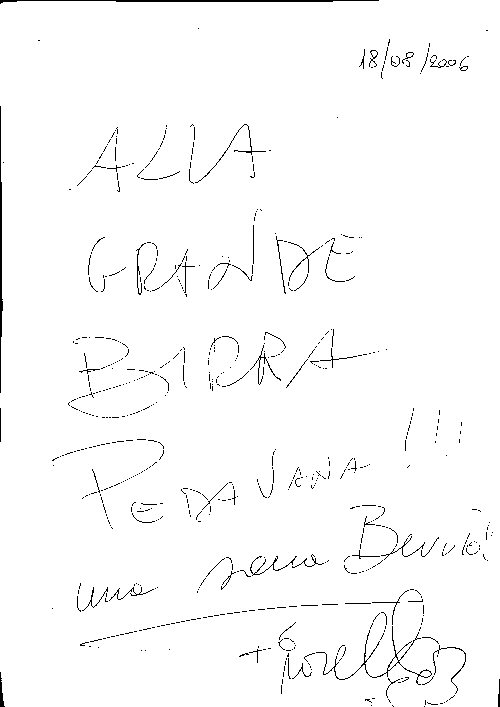 18/08/2006
ALLA
GRANDE
BIRRA
PEDAVANA!!!
una sana
Fiorello